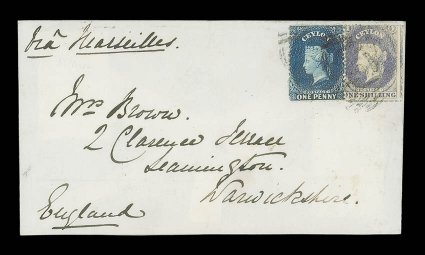 Viâ Marseilles.
CEYLON
POSTAGE
ONE PENNY
CEYLON
POSTAGE
ONE SHILLING
Mrs Brown.
2 Clarence Terrace
Leamington.
Warwickshire.
England